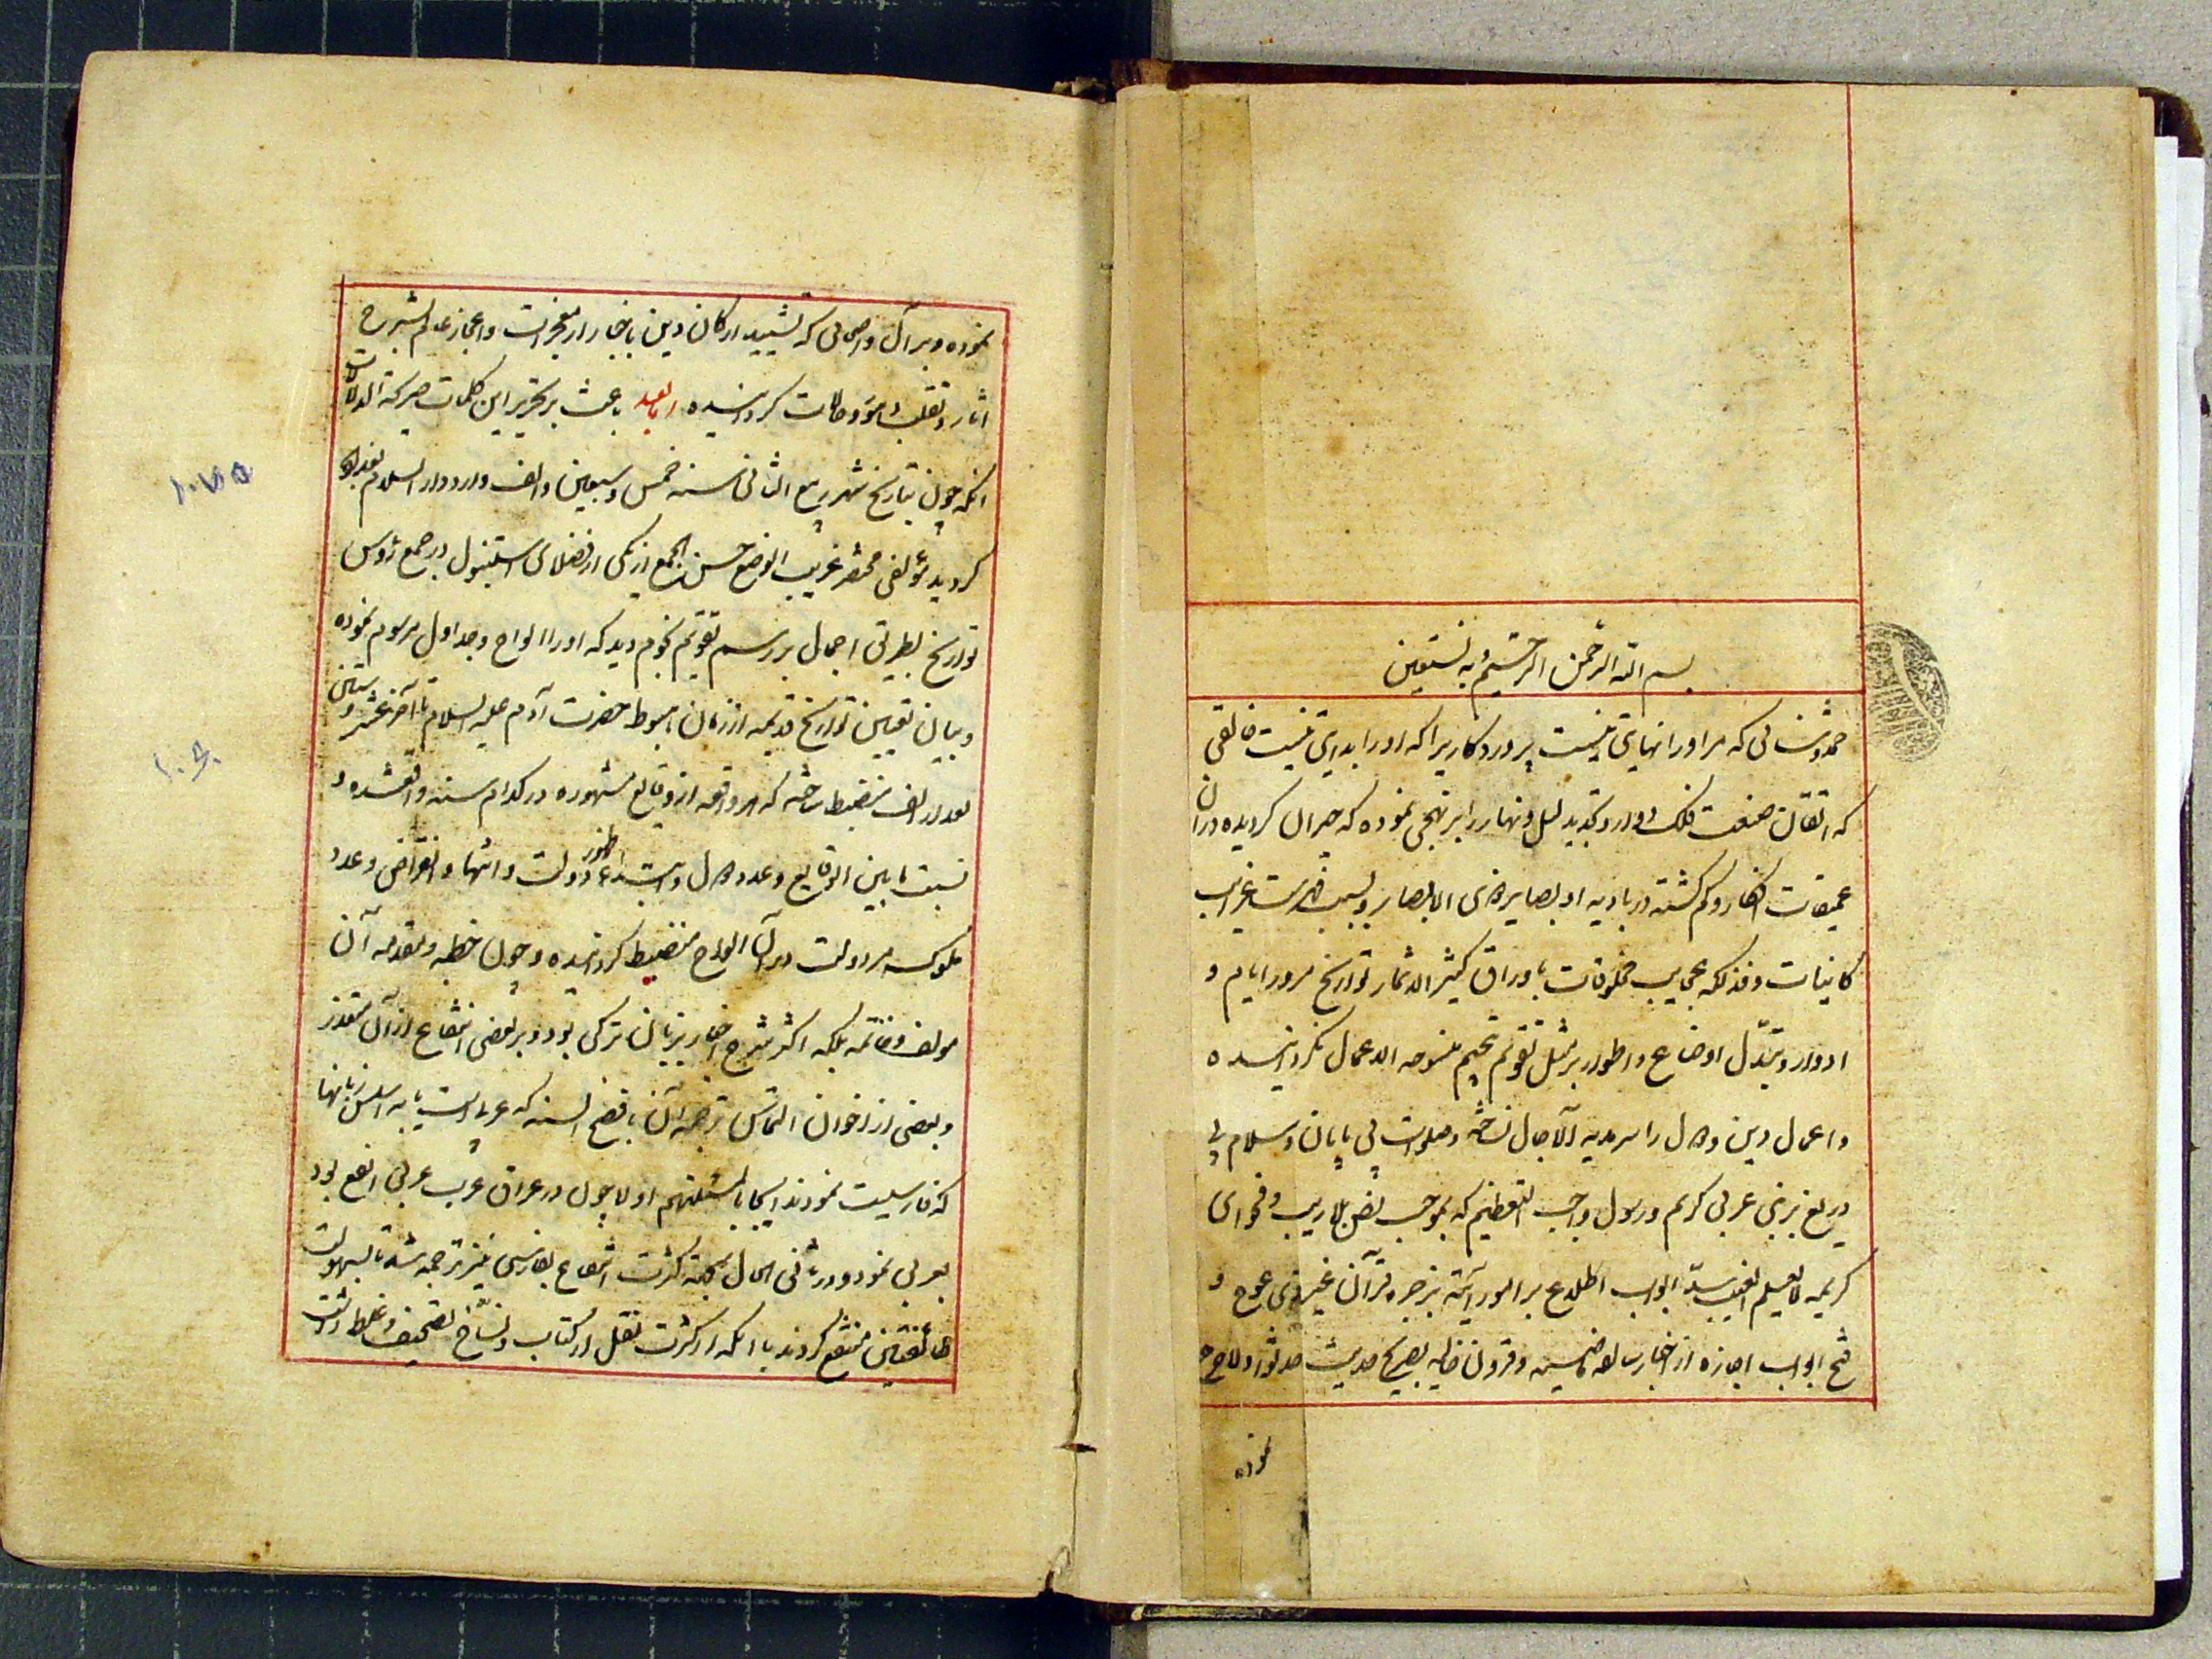 بسم الله الرحمن الرحیم وبه نستعین
حمد و ثنائی که مر اورا نهایتی نیست پروردکاریرا که اورا بدایتی نیست خالقی
که اتقان صنعت فلک دوار و تجدید لیل و نهار را بر نهجی نموده که حیران کردیده دران
عمیقات افکار و کم کشته در بادیه او بصایر ذوی الابصار و بسبب فهرست غرایب
کاینات و فذلکه عجایب مخلوقات باوراق کثیر الاثمار تواریخ مرور ایام و
ادوار و تبدّل اوضاع و اطوار بر مثل تقویم نکردانیده
و اعمال دین و دول را ساخته و صلوات بی پایان و سلام بی
دریغ بر نبی عربی کریم و رسول واجب التعظیم که بموجب نص بلاریب و فحوای
کریمه لا یعلم الغیب سدّ ابواب اطلاع بر امور آتیه بزجر قرآن غیر ذی عوج و
فتح ابواب اجازه از اخبار سالفه ماضیه و قرون خالیه بصریح حدیث حدثوا ولا حرج
نموده
نموده و بر آل و اصحابی که تشیید ارکان دین باخبار از معجزات و اعجاز علم بشرح
اثار و تقلب امور و حالات کردانیده اما بعد باعث بر تحریر این کلمات صریحة الدلالات
انکه چون بتاریخ شهر ربیع الثانی سنه خمس و سبعین و الف وارد دار السلام بغداد
۱۰۷۵
کردید مؤلفی مختصر غریب الوضع حسن الجمع از یکی از فضلای استنبول در جمع رؤس
تواریخ بطریق اجمال بر رسم تقویم نجوم دید که اورا الواح و جداول مرسوم نموده
و بیان تعیین تواریخ قدیمه از زمان هبوط حضرت آدم علیه السلام تا آخر عشر و ستین
بعد از الف منضبط ساخته که هر واقعه از وقایع مشهوره در کدام سنه واقعشده و
نسبت مابین الوقایع و عدد دول و ابتداء ظهور دولت و انتها و انقراض و عدد
ملوک هر دولت در آن الواح منضبط کردانیده و چون خطبه و مقدمه آن
مولف و خاتمه بلکه اکثر شرح اخبار بزبان ترکی بود و بر بعضی انتفاع از آن متعذر
و بعضی از اخوان التماس ترجمه آن بافصح السنه که عربیست یا به اسلس زبانها
که فارسیست نمودند ایجابا لمسئلتهم اولا چون در عراق عرب عربی انفع بود
بعربی نمود و در ثانی الحال بجهة کثرت انتفاع بفارسی نیز ترجمه شد تا بسهولت
طائفتین منتفع کردند با انکه از کثرت نقل از کتاب و نسّاخ تصحیف و غلط داشت